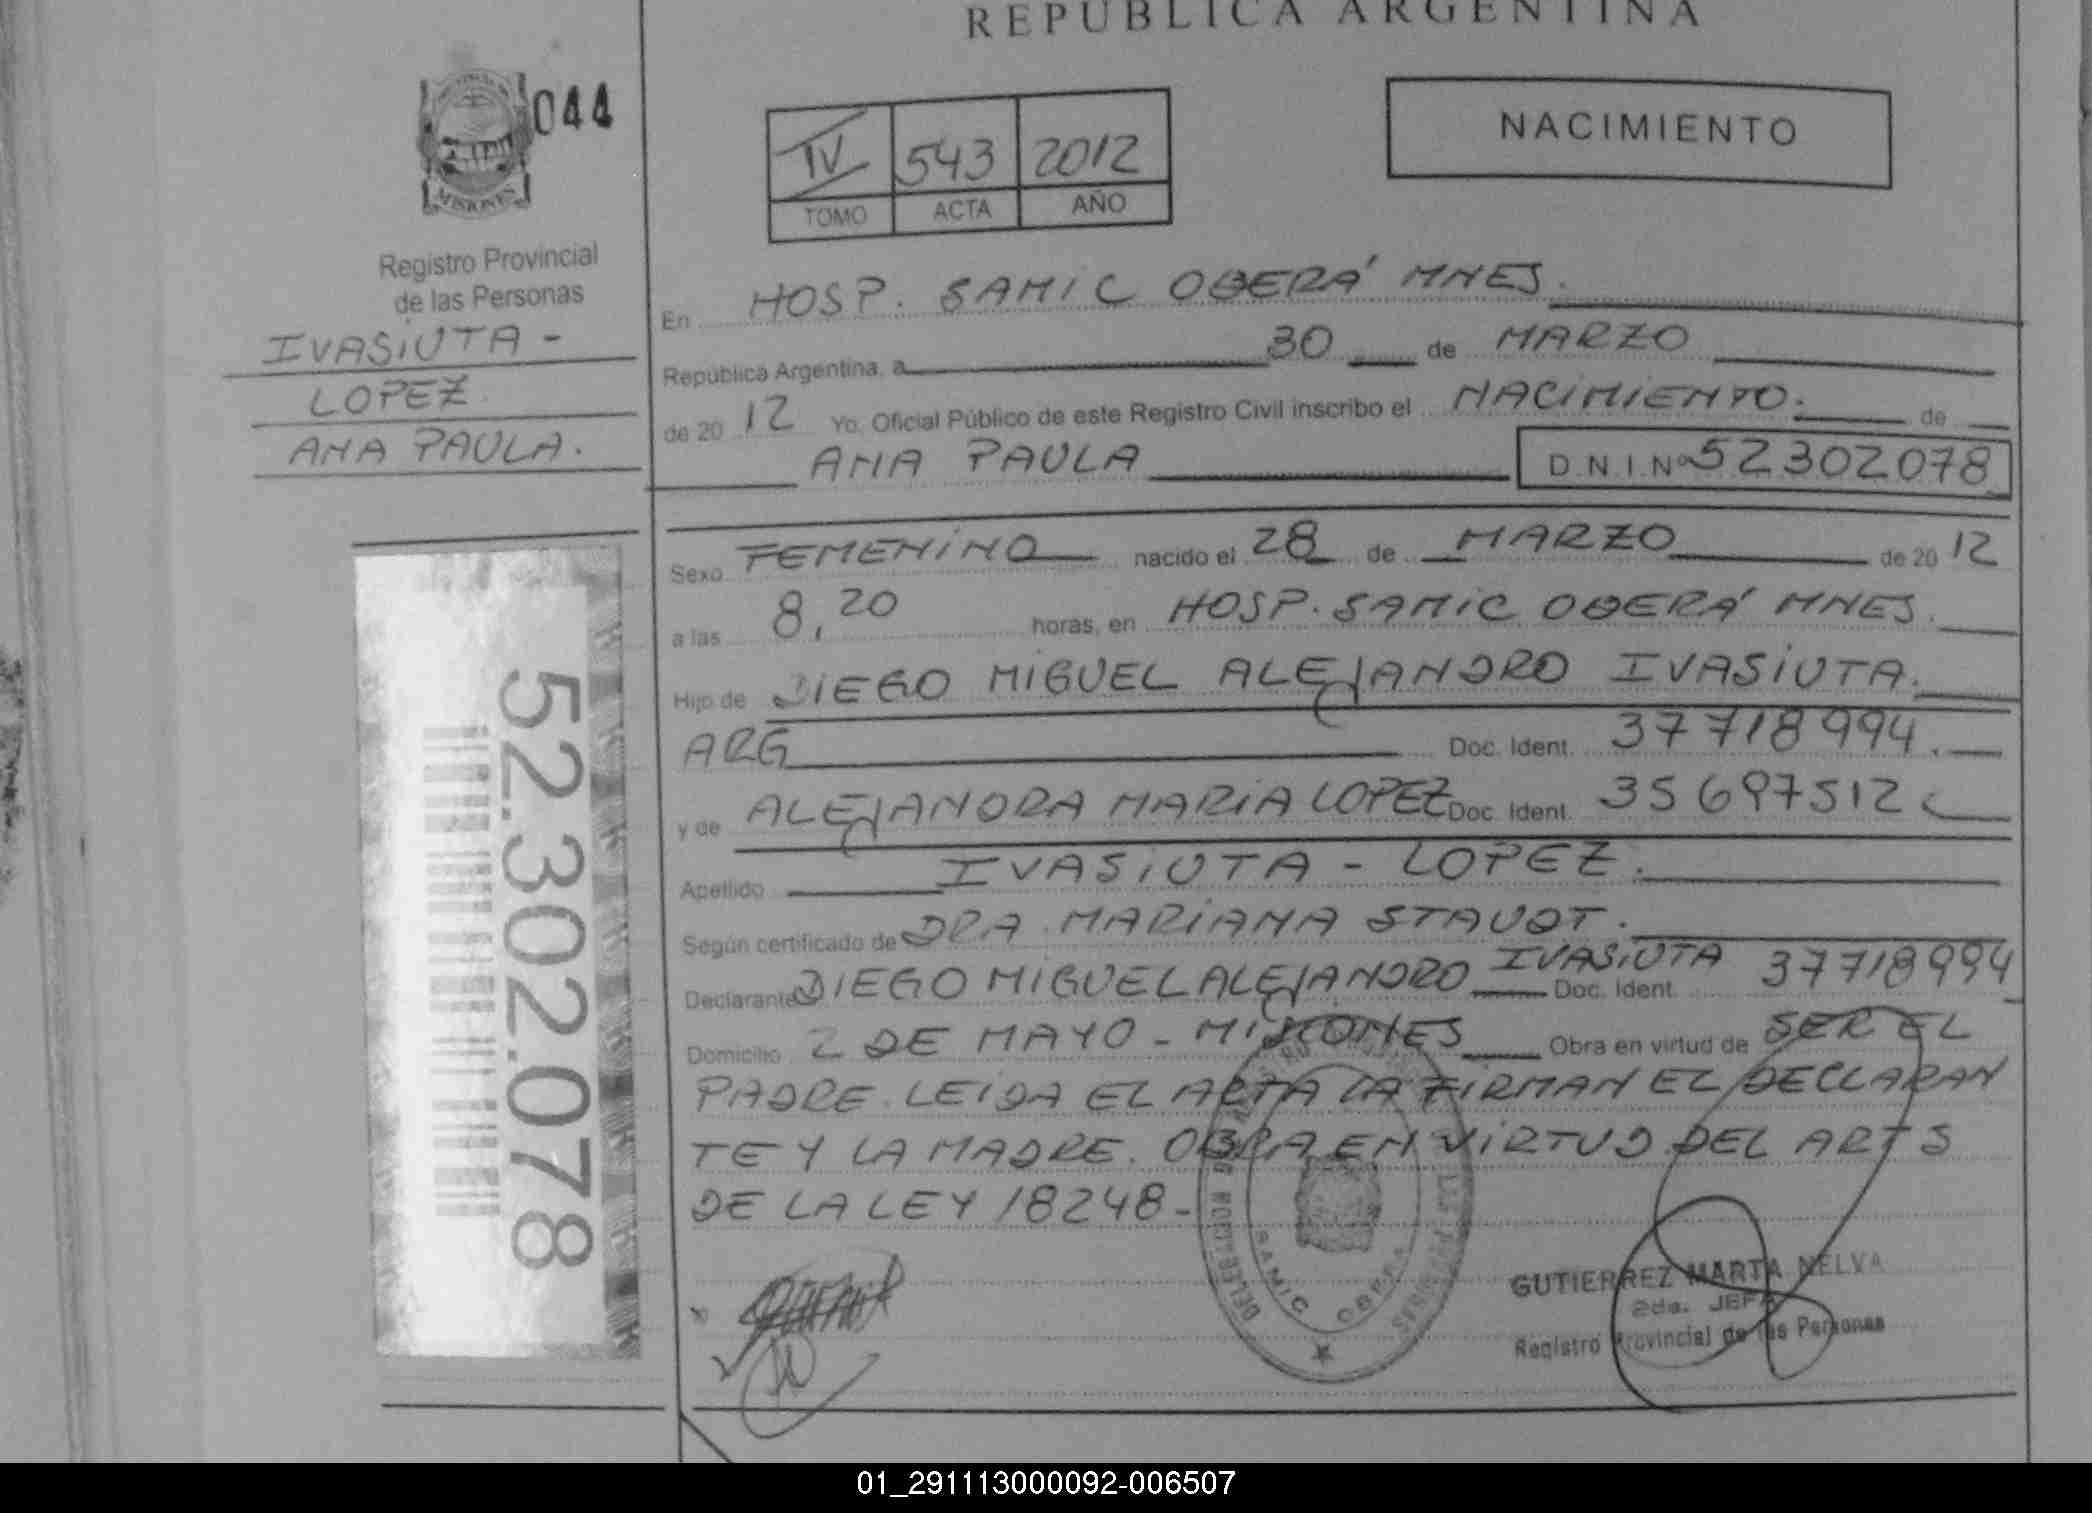 REPUBLICA ARGENTINA
044
MISIONES
Registro Provincial
de las Personas
IVASIUTA -
LOPEZ
ANA PAULA.
52.302.078
IV 543 2012
TOMO ACTA AÑO
NACIMIENTO
En HOSP. SAMIC OBERÁ MNES.
República Argentina, a 30 de MARZO
de 20 12 Yo. Oficial Público de este Registro Civil inscribo el NACIMIENTO. de
ANA PAULA D.N.I.Nº 52302078
Sexo FEMENINO nacido el 28 de MARZO de 20 12
a las 8,20 horas, en HOSP. SAMIC OBERÁ MNES.
Hijo de DIEGO MIGUEL ALEJANDRO IVASIUTA.
ARG Doc. Ident. 37718994.
y de ALEJANDRA MARIA LOPEZ Doc. Ident. 35697512
Apellido IVASIUTA - LOPEZ.
Según certificado de DRA. MARIANA STAUDT.
Declarante DIEGO MIGUEL ALEJANDRO IVASIUTA Doc. Ident. 37718994
Domicilio 2 DE MAYO - MISIONES Obra en virtud de SER EL
PADRE. LEIDA EL ACTA LA FIRMAN EL DECLARAN
TE Y LA MADRE. OBRA EN VIRTUD DEL ART 5
DE LA LEY 18248 -
SAMIC OBERA
GUTIERREZ MARTA NELVA
2da. JEFA
Registro Provincial de las Personas
01_291113000092-006507